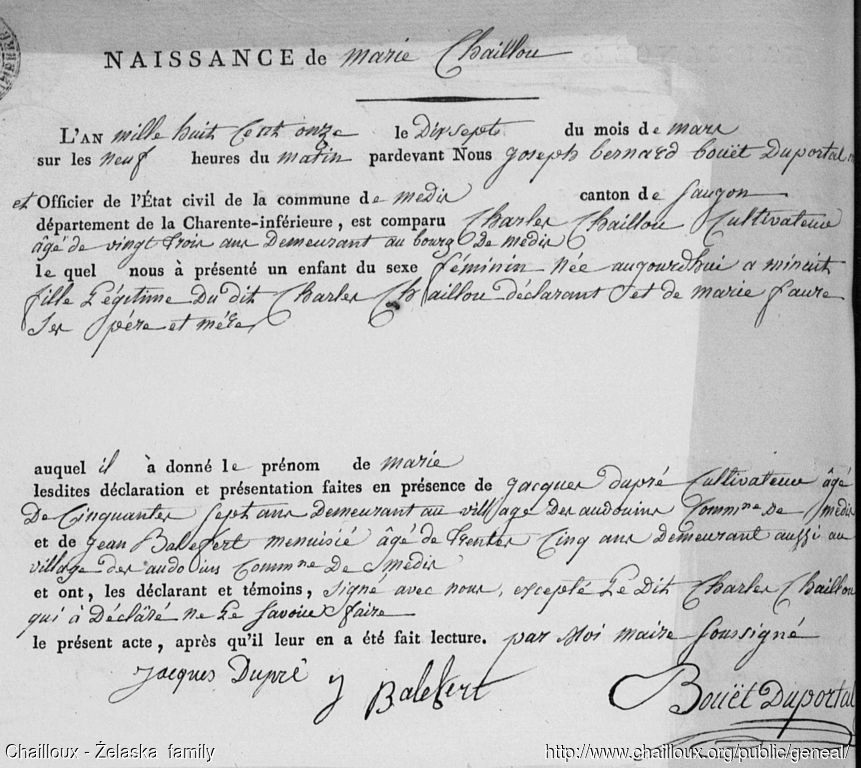 NAISSANCE de marie Chaillou
L'AN mille huit Cent onze le Dix sept du mois de mars
sur les neuf heures du matin pardevant Nous joseph bernard bouët Duportal
et Officier de l'État civil de la commune de medis canton de Saugon
département de la Charente-inférieure, est comparu Charles Chaillou Cultivateur
âgé de vingt trois ans Demeurant au bourg De medis
le quel nous à présenté un enfant du sexe féminin Née aujourdhui a minuit
fille Légitime Du dit Charles Chaillou déclarant et de marie faure
Ses pére et mére
auquel il à donné le prénom de marie
lesdites déclaration et présentation faites en présence de jacques dupré Cultivateur âgé
De Cinquante Sept ans Demeurant au village Des audouins Commne De Medis
et de jean Balefert menuisié âgé de trente Cinq ans Demeurant aussi au
village des audouins Commne De Medis
et ont, les déclarant et témoins, signé avec nous, excepté Le Dit Charles Chaillou
qui à Déclaré ne Le Savoir faire
le présent acte, après qu'il leur en a été fait lecture. par Moi maire Soussigné
jacques Dupré J Balefert Bouët Duportal
Chailloux - Želaska family http://www.chailloux.org/public/geneal/